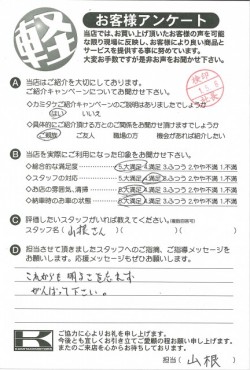 軽
お客様アンケート
当店では、お買い上げ頂いたお客様の声を可能
な限り現場に反映し、お客様により良い商品と
サービスを提供する事に努めています。
大変お手数ですが是非お声をお聞かせ下さい。
A 当店はご紹介を大切にしております。
ご紹介キャンペーンについてお聞かせ下さい。
◇カミタケご紹介キャンペーンのご説明はありましたでしょうか
はい いいえ
◇具体的にご紹介頂ける方とのご関係をお聞かせ頂けますでしょうか
ご親族 ご友人 職場の方 機会があれば紹介したい
B 当店を実際にご利用になった印象をお聞かせ下さい。
◇総合的な満足度 5.大満足 4.満足 3.ふつう 2.やや不満 1.不満
◇スタッフの対応 5.大満足 4.満足 3.ふつう 2.やや不満 1.不満
◇お店の雰囲気、清掃 5.大満足 4.満足 3.ふつう 2.やや不満 1.不満
◇納車時のお車の状態 5.大満足 4.満足 3.ふつう 2.やや不満 1.不満
C 評価したいスタッフがいれば教えてください。(複数回答可)
スタッフ名( 山根さん )( )( )
D 担当させて頂きましたスタッフへのご指摘、ご指導メッセージを
お願いします。応援メッセージもぜひお願いします。
これからも明るさを忘れず
がんばって下さい。
K
ご協力に心よりお礼を申し上げます。
今後とも宜しくお引き立てご愛顧の程お願い申し上げます。
またのご来店を心からお待ちしております。
担当( 山根 )